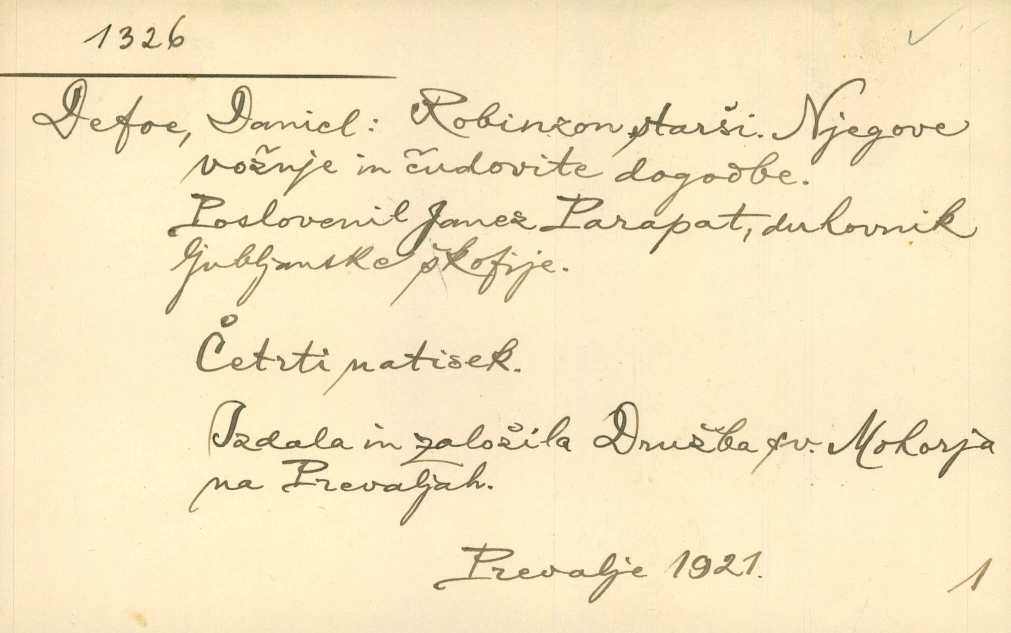 1326
Defoe, Daniel: Robinzon starši. Njegove
vožnje in čudovite dogodbe.
Poslovenil Janez Parapat, duhovnik
ljubljanske škofije.
Četrti natisek.
Izdala in založila Družba sv. Mohorja
na Prevaljah.
Prevalje 1921.
1